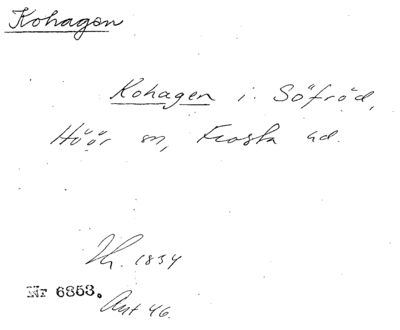 Kohagen
Kohagen i Söfröd,
Höör sn, Frosta hd.
Th. 1834
Nr 6853.
Ant 46.